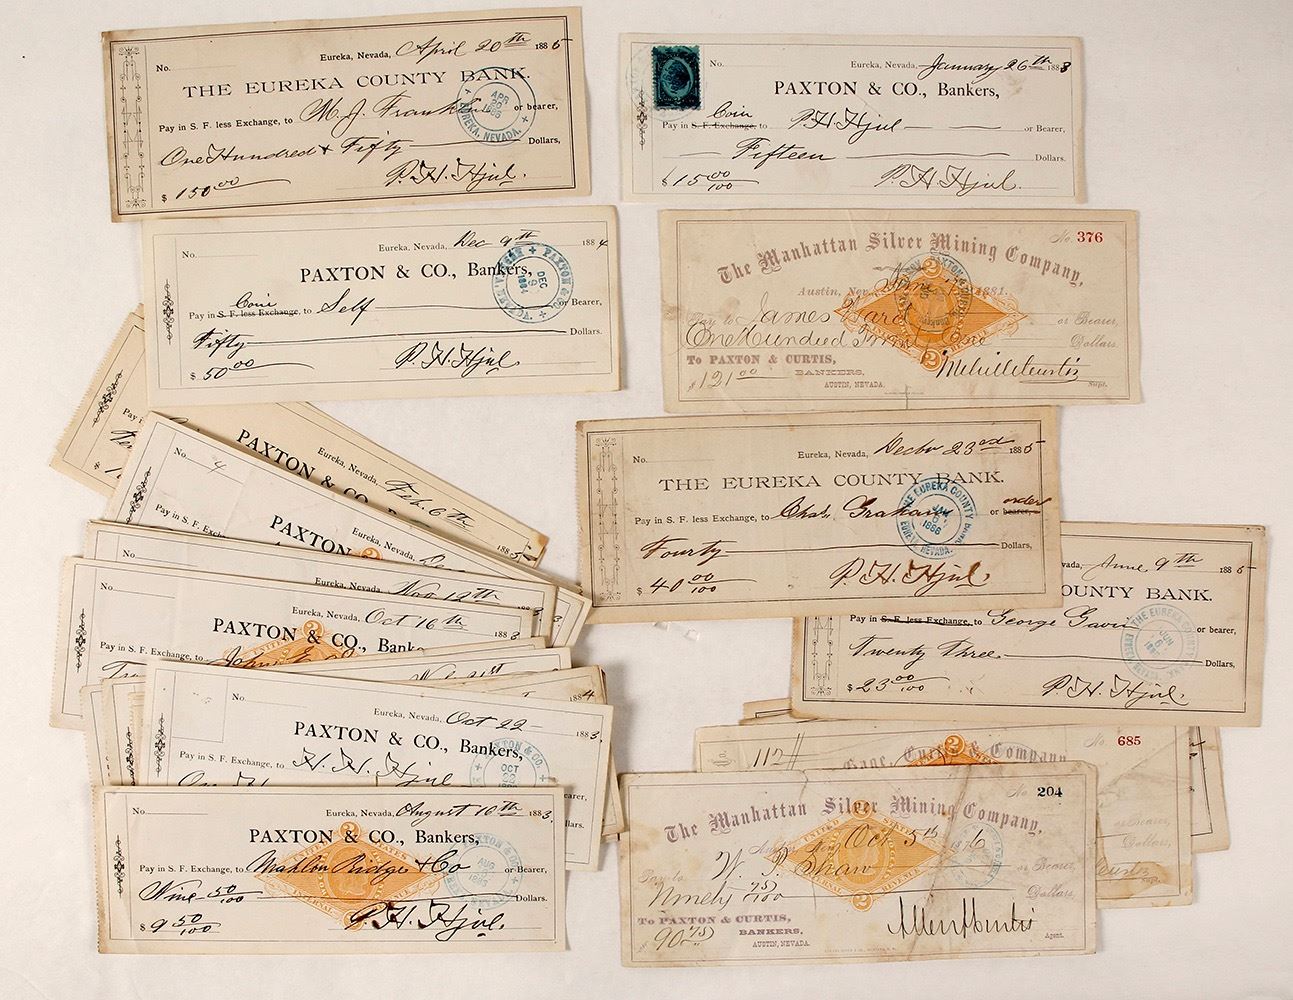 Eureka, Nevada, April 20th 1885
No.
THE EUREKA COUNTY BANK.
Pay in S. F. less Exchange, to M. J. Franklin or bearer,
One Hundred & Fifty Dollars,
$ 150.00 P. H. Hjul.
APR 20
EUREKA, NEVADA.
No. Eureka, Nevada, January 26th 1883
PAXTON & CO., Bankers,
Coin
Pay in S. F. Exchange, to P. H. Hjul or Bearer,
Fifteen Dollars.
$ 15 00/100 P. H. Hjul.
Eureka, Nevada, Dec 9th 1884
No.
PAXTON & CO., Bankers,
Coin
Pay in S. F. less Exchange, to Self or Bearer,
Fifty Dollars.
$ 50 00 P. H. Hjul.
PAXTON & CO.
DEC 9 1884
No. 376
The Manhattan Silver Mining Company,
Austin, Nev. 1881.
Pay to James Ward or Bearer,
One Hundred Dollars
To PAXTON & CURTIS,
BANKERS,
AUSTIN, NEVADA.
$ 121 00 Melville Curtis
Supt.
Eureka, Nevada, Decbr 23rd 1885
No.
THE EUREKA COUNTY BANK.
order
Pay in S. F. less Exchange, to Chas. Graham or bearer,
Fourty Dollars,
$ 40 00/100 P. H. Hjul.
THE EUREKA COUNTY BANK
1886
EUREKA, NEVADA.
vada, June 9th 1885
OUNTY BANK.
Pay in S. F. less Exchange, to George Gavin or bearer,
Twenty Three Dollars,
$ 23 00/100 P. H. Hjul.
THE EUREKA COUNTY
JUN
Pay i
$ 1
Eureka, Nevada, Feb. 6th 1885
PAXTON & CO
No. 4
Eureka, Nevada,
PAXTON
Pay in S. F. Exc
No.
Eureka, Nevada, Nov 12th 3
No.
Eureka, Nevada, Oct 16th 1883
PAXTON & CO., Bank
Pay in S. F. Exchange, to John
1884
No.
Eureka, Nevada, Oct 22 1883
PAXTON & CO., Bankers,
Pay in S. F. Exchange, to H. H. Hjul earer,
One H llars.
OCT
No. Eureka, Nevada, August 10th 1883
PAXTON & CO., Bankers,
Pay in S. F. Exchange, to Mahlon Ridge & Co or Bearer,
Nine 50/100 Dollars.
$ 9 50/100 P. H. Hjul.
UNITED STATES
INTERNAL REVENUE
AUG
112
No. 685
Gage, Curtis & Company
or Bearer,
Dollars,
Curtis
Supt.
No 204
The Manhattan Silver Mining Company,
Austin, Nev. Oct 5th 1876
Pay to W. P. Shaw or Bearer
Ninety 75/100 Dollars
UNITED STATES
INTERNAL REVENUE
To PAXTON & CURTIS,
BANKERS,
AUSTIN, NEVADA.
$ 90 75 Allen A Curtis
Agent.